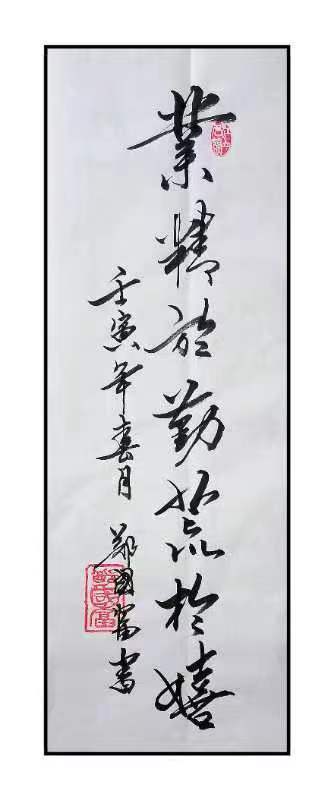 業精於勤荒於嬉
壬寅年月 鄭國富書